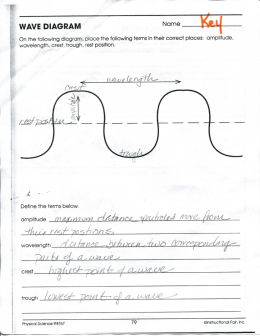 WAVE DIAGRAM
Name Key
On the following diagram, place the following terms in their correct places: amplitude,
wavelength, crest, trough, rest position.
wavelength
crest
amplitude
rest position
trough
Define the terms below.
amplitude maximum distance particles move from
their rest positions
wavelength distance between two corresponding
parts of a wave
crest highest point of a wave
trough lowest point of a wave
Physical Science IF8767
79
©Instructional Fair, Inc.